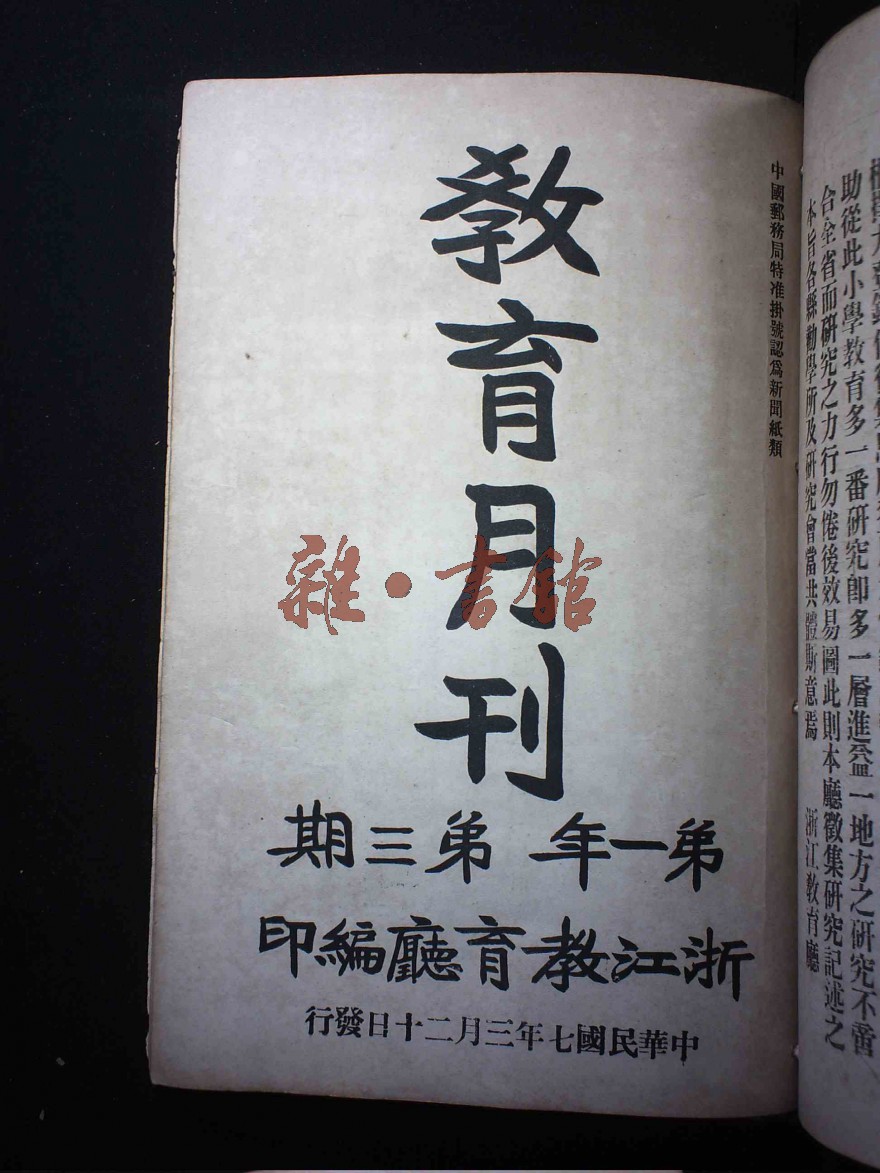 中國郵務局特准掛號認爲新聞紙類
教育月刊
弟一年 弟三期
浙江教育廳編印
中華民國七年三月二十日發行
雜·書館
助從此小學教育多一番研究卽多一層進益一地方之研究不啻
合全省而研究之力行勿倦後效易圖此則本廳徵集研究記述之
本旨各縣勸學所及研究會當共體斯意焉 浙江教育廳